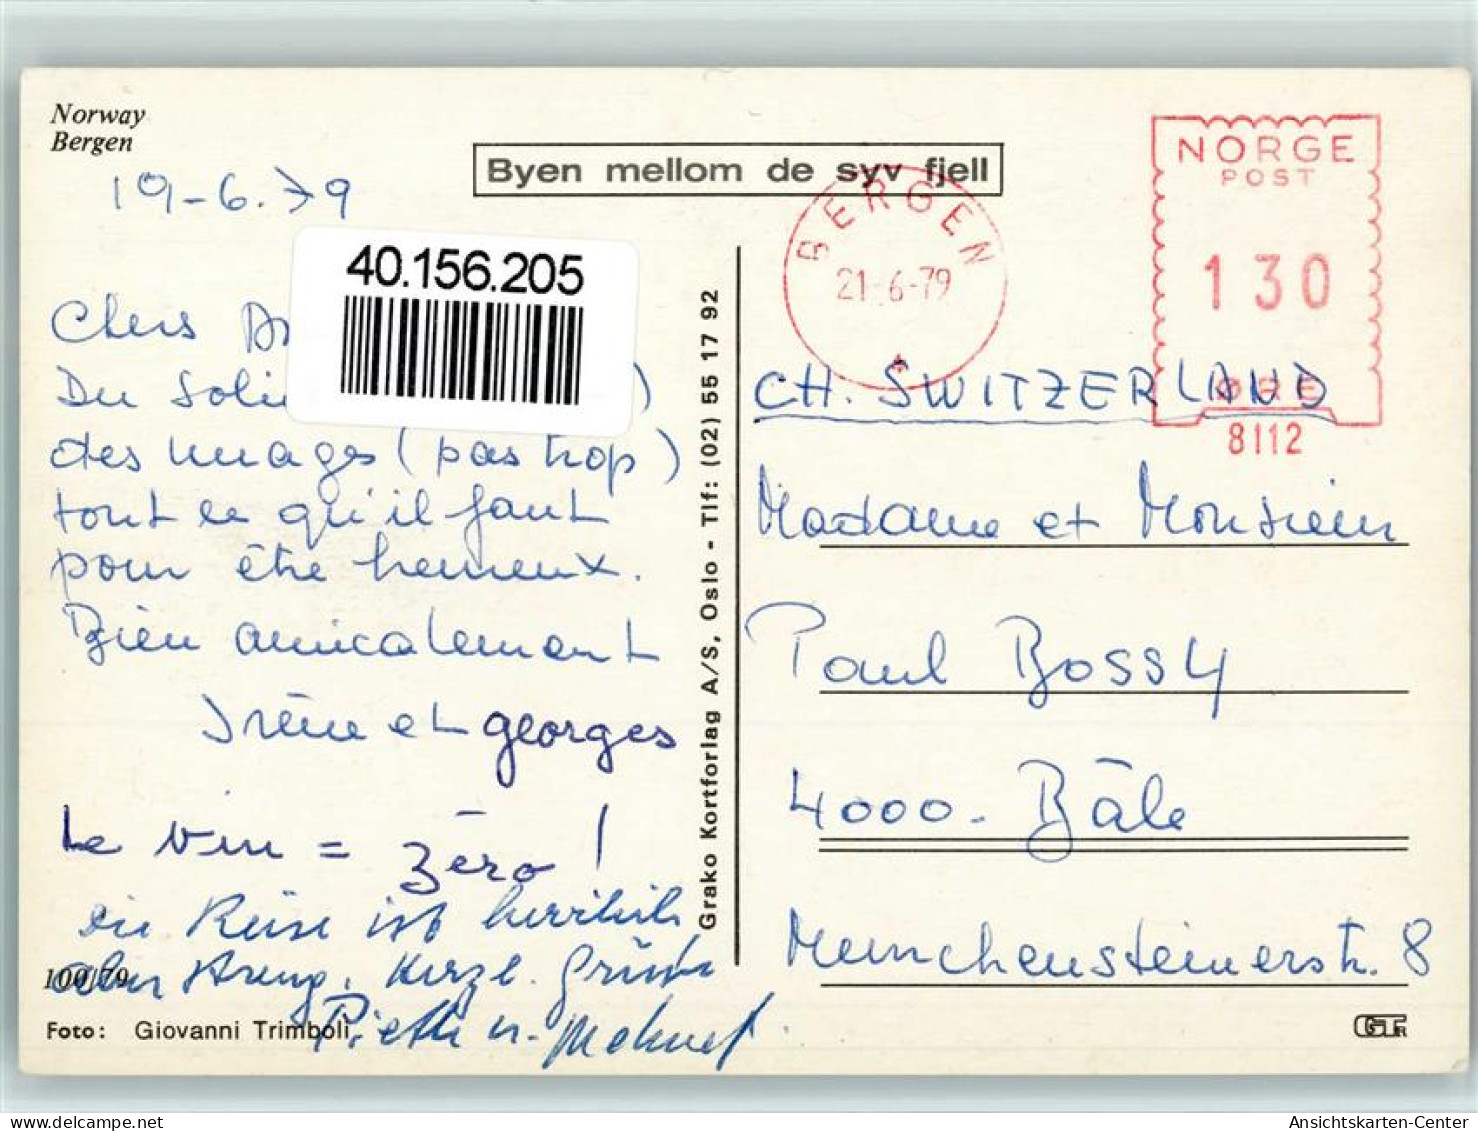 Norway
Bergen
19-6.79
Byen mellom de syv fjell
BERGEN
21-6-79
NORGE
POST
130
ØRE
8112
40.156.205
Chers
Du Soleil
des nuages (pas trop)
tout ce qu'il faut
pour être heureux.
Bien amicalement
Irène et georges
Le vin = Zéro !
Die Reise ist herrlich
aber streng. Herzl. Grüsse
100/79
Foto: Giovanni Trimboli
Grako Kortforlag A/S, Oslo - Tlf: (02) 55 17 92
CH. SWITZERLAND
Madame et Monsieur
Paul Bossy
4000 - Bâle
Menchensteinerstr. 8
Ansichtskarten-Center
delcampe.net